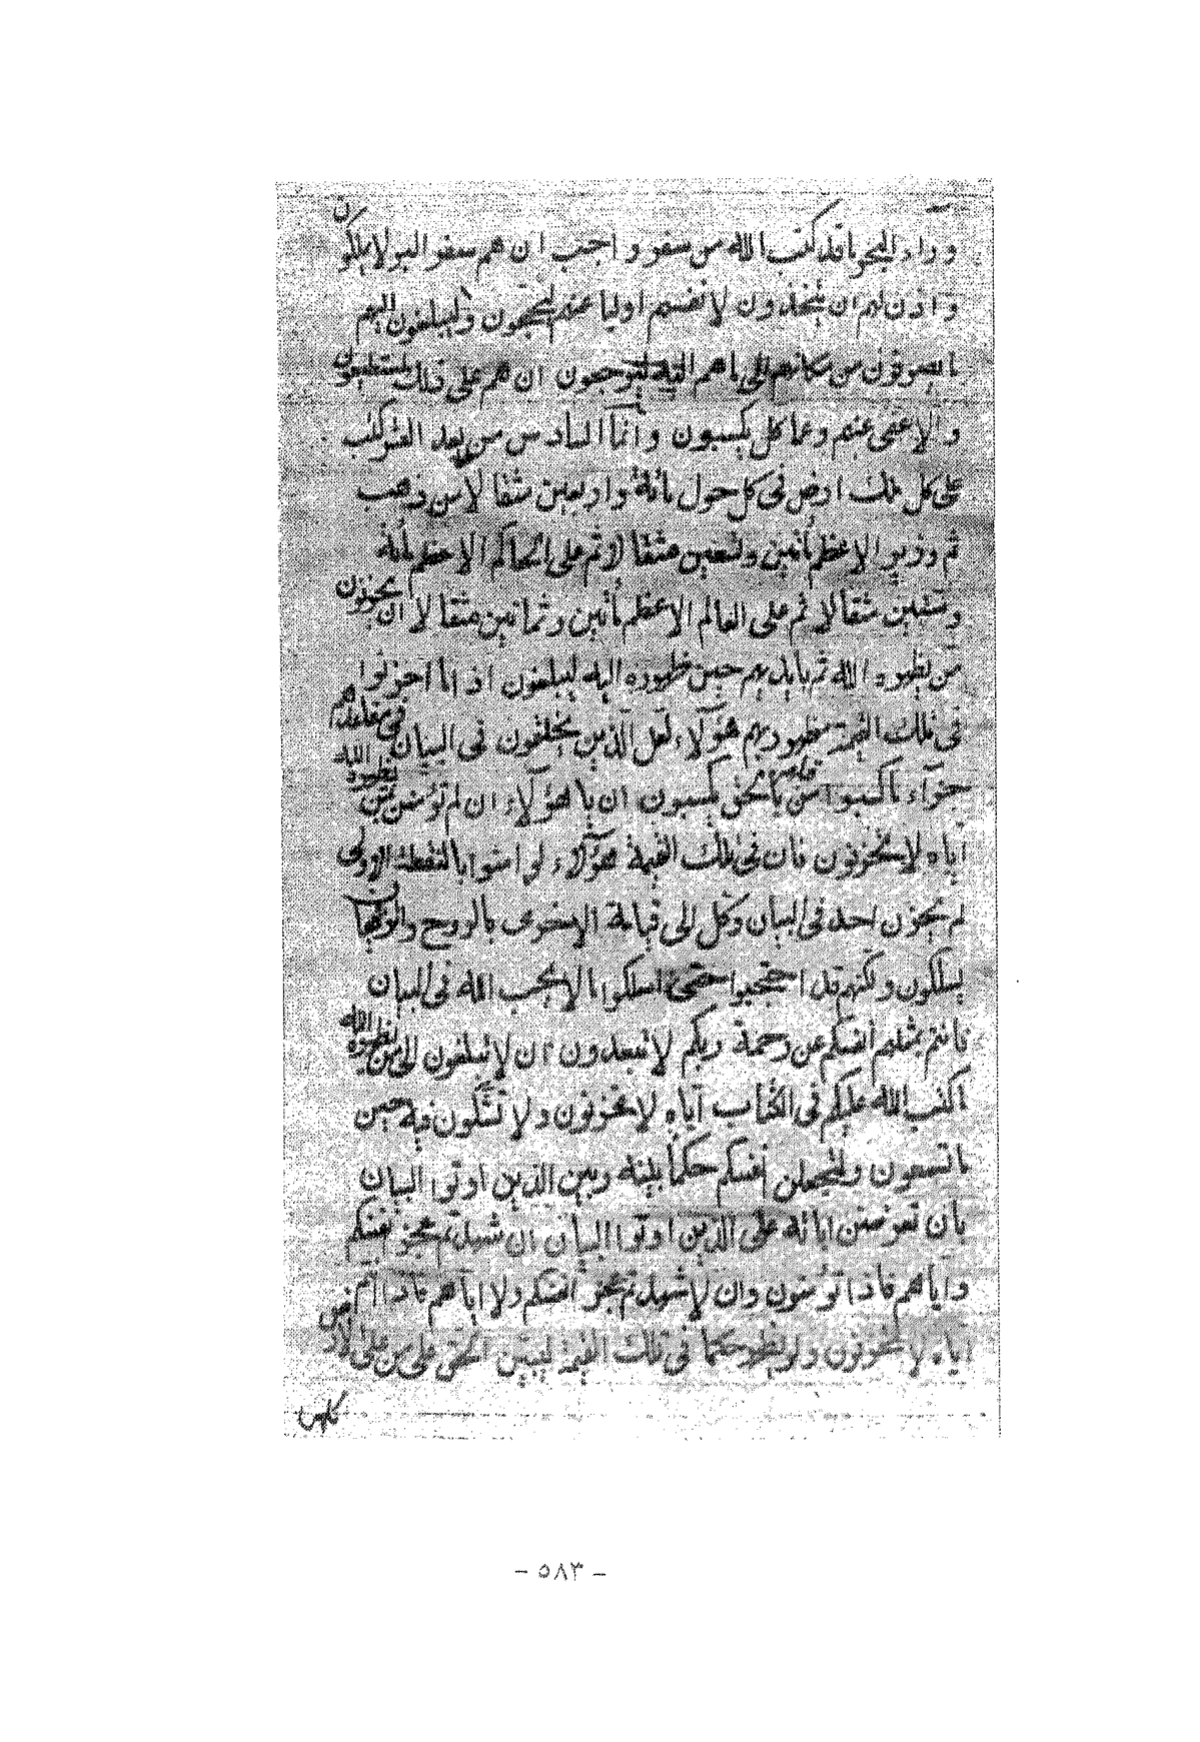 وراء البحر ما قد كتب الله من سفر واجب ان هم سفر البر لا يملكون
واذن لهم ان يتخذون لانفسهم اوليا عنهم ليحجون وليبلغون اليهم
ما يصرفون من مكانهم الى ما هم اليه ليرجعون ان هم على ذلك لمستطيعون
والا عفى عنهم وعما كل يكسبون وانما السادس من بعد العشر كتب
على كل ملك ارض فى كل حول مأئة واربعين مثقالا من ذهب
ثم وزير الاعظم مأتين وتسعين مثقالا ثم على الحاكم الاعظم مأئة
وستين مثقالا ثم على العالم الاعظم مأتين وثمانين مثقالا ان يحزنون
من يظهره الله ثم بايديهم حين ظهوره اليه ليبلغون اذ انا احزنوا
فى تلك القيمة مظهر ربهم هؤلاء لعل الذين يخلفون فى البيان فى مقاعدهم
جزآء ما كسبوا من قبلهم بالحق يكسبون ان يا هؤلاء ان لم تؤمنن بمن يظهره الله
اياه لا تحزنون فان فى تلك القيمة هؤلاء لو امنوا بالنقطة الاولى
لم يحزن احد فى البيان وكل الى قيامة الاخرى بالروح والريحان
ليسلكون ولكنهم قد احتجبوا حتى اسلكوا ما لا يحب الله فى البيان
فانتم بمثلهم انفسكم عن رحمة ربكم لا تبعدون ان لا تبلغون الى من يظهره الله
ما كتب الله عليكم فى الكتاب اياه لا تحزنون ولا تشكون فيه حين
ما تسمعون ولتجعلن انفسكم حكما بينه وبين الذين اوتوا البيان
بان تعرضن اياته على الذين اوتوا البيان ان شهدتم عجز انفسكم
واياهم فاذا تؤمنون وان لا شهدتم عجز انفسكم ولا اياهم فاذا انتم
اياه لا تحزنون ولو يظهر حكما فى تلك القيمة ليبين الحق على من على الارض
كلهن
- ٥٨٣ -